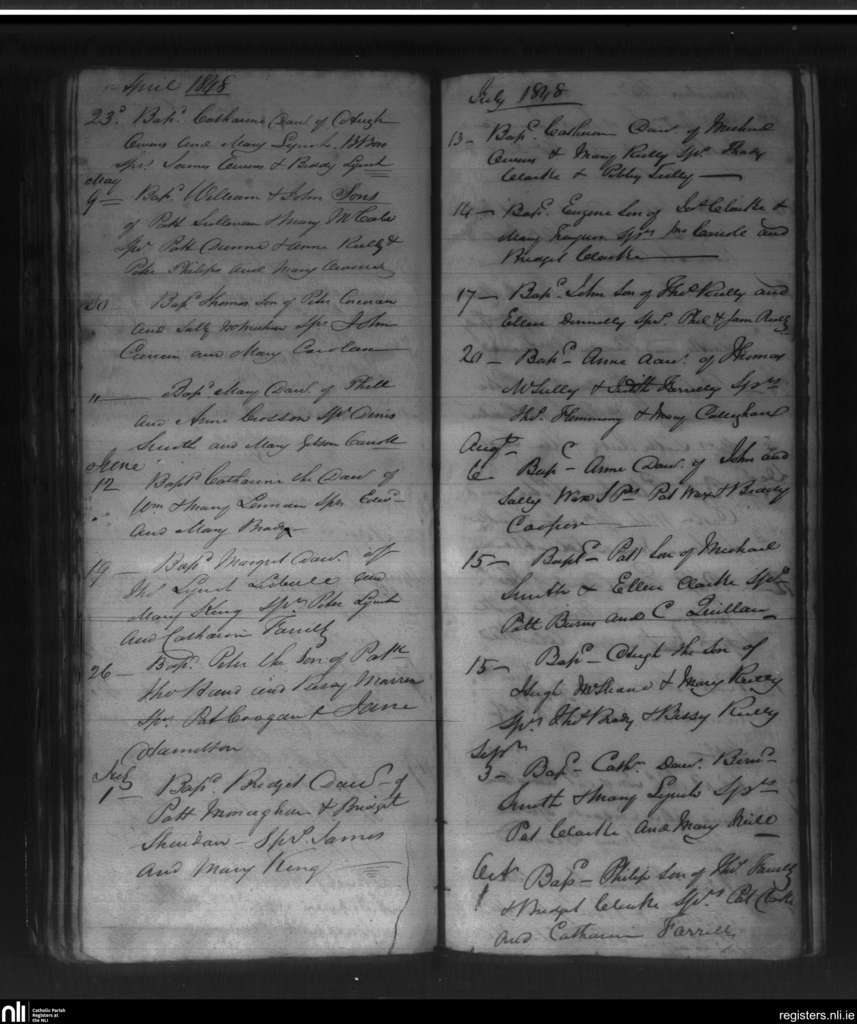 April 1848
23d Bapd Catharine Daur of Hugh
Owens and Mary Lynch
Sprs James Owens & Biddy Lynch
May
9 — Bapd William & John Sons
of Patt Sullivan & Mary McCabe
Spr Patt Dunne & Anne Reilly &
Peter Philips and Mary
20 Bapd Thomas Son of Peter Corcoran
and Sally Sprs John
and Mary Carolan
" — Bapd Mary Daur of Phill
and Anne Crosson Spr Denis
Smith and Mary Carroll
June
12 Bapd Catharine the Daur of
Wm & Mary Lennan Sprs Edwd
and Mary Brady
19 — Bapd Margret Daur of
Thos Lynch and
Mary King Sprs Peter Lynch
and Catharin Farrelly
26 — Bapd Peter the Son of Patk
Thos Hand and Warren
Sprs Pat Coogan & Jane
Hamelton
July
1 — Bapd Bridget Daur of
Patt Monaghan & Bridget
Sheridan — Sprs James
and Mary King
July 1848
13 — Bapd Catharin Daur of Michael
Owens & Mary Reilly Sprs Thady
Clarke & Tully —
14 — Bapd Eugene Son of Clarke &
Mary Sprs Carrole and
Bridget Clarke —
17 — Bapd John Son of Thos Reilly and
Ellen Donnelly Sprs Phil & Jam Reilly
20 — Bapd Anne Daur of Thomas
McGully & Judith Farrelly Sprs
Thos Flemming & Mary Callaghan
Augt
6 Bapd — Anne Daur of John and
Sally Wax Sprs Pat Wax &
Cooper —
15 — Bapd — Patt Son of Michael
Smith & Ellen Clarke Sprs
Patt Burns and C Quillan
15 — Bapd — Hugh the Son of
Hugh McShane & Mary Reilly
Sprs Thos Brady & Bessy Reilly
Septr
3 — Bapd — Cath Daur Bernd
Smith & Mary Lynch Sprs
Pat Clarke and Mary
Oct
1 Bapd — Philip Son of Thos Farrelly
& Bridget Clarke Sprs Pat Clarke
and Catharin Farrelly
nli Catholic Parish
Registers at
the NLI
registers.nli.ie